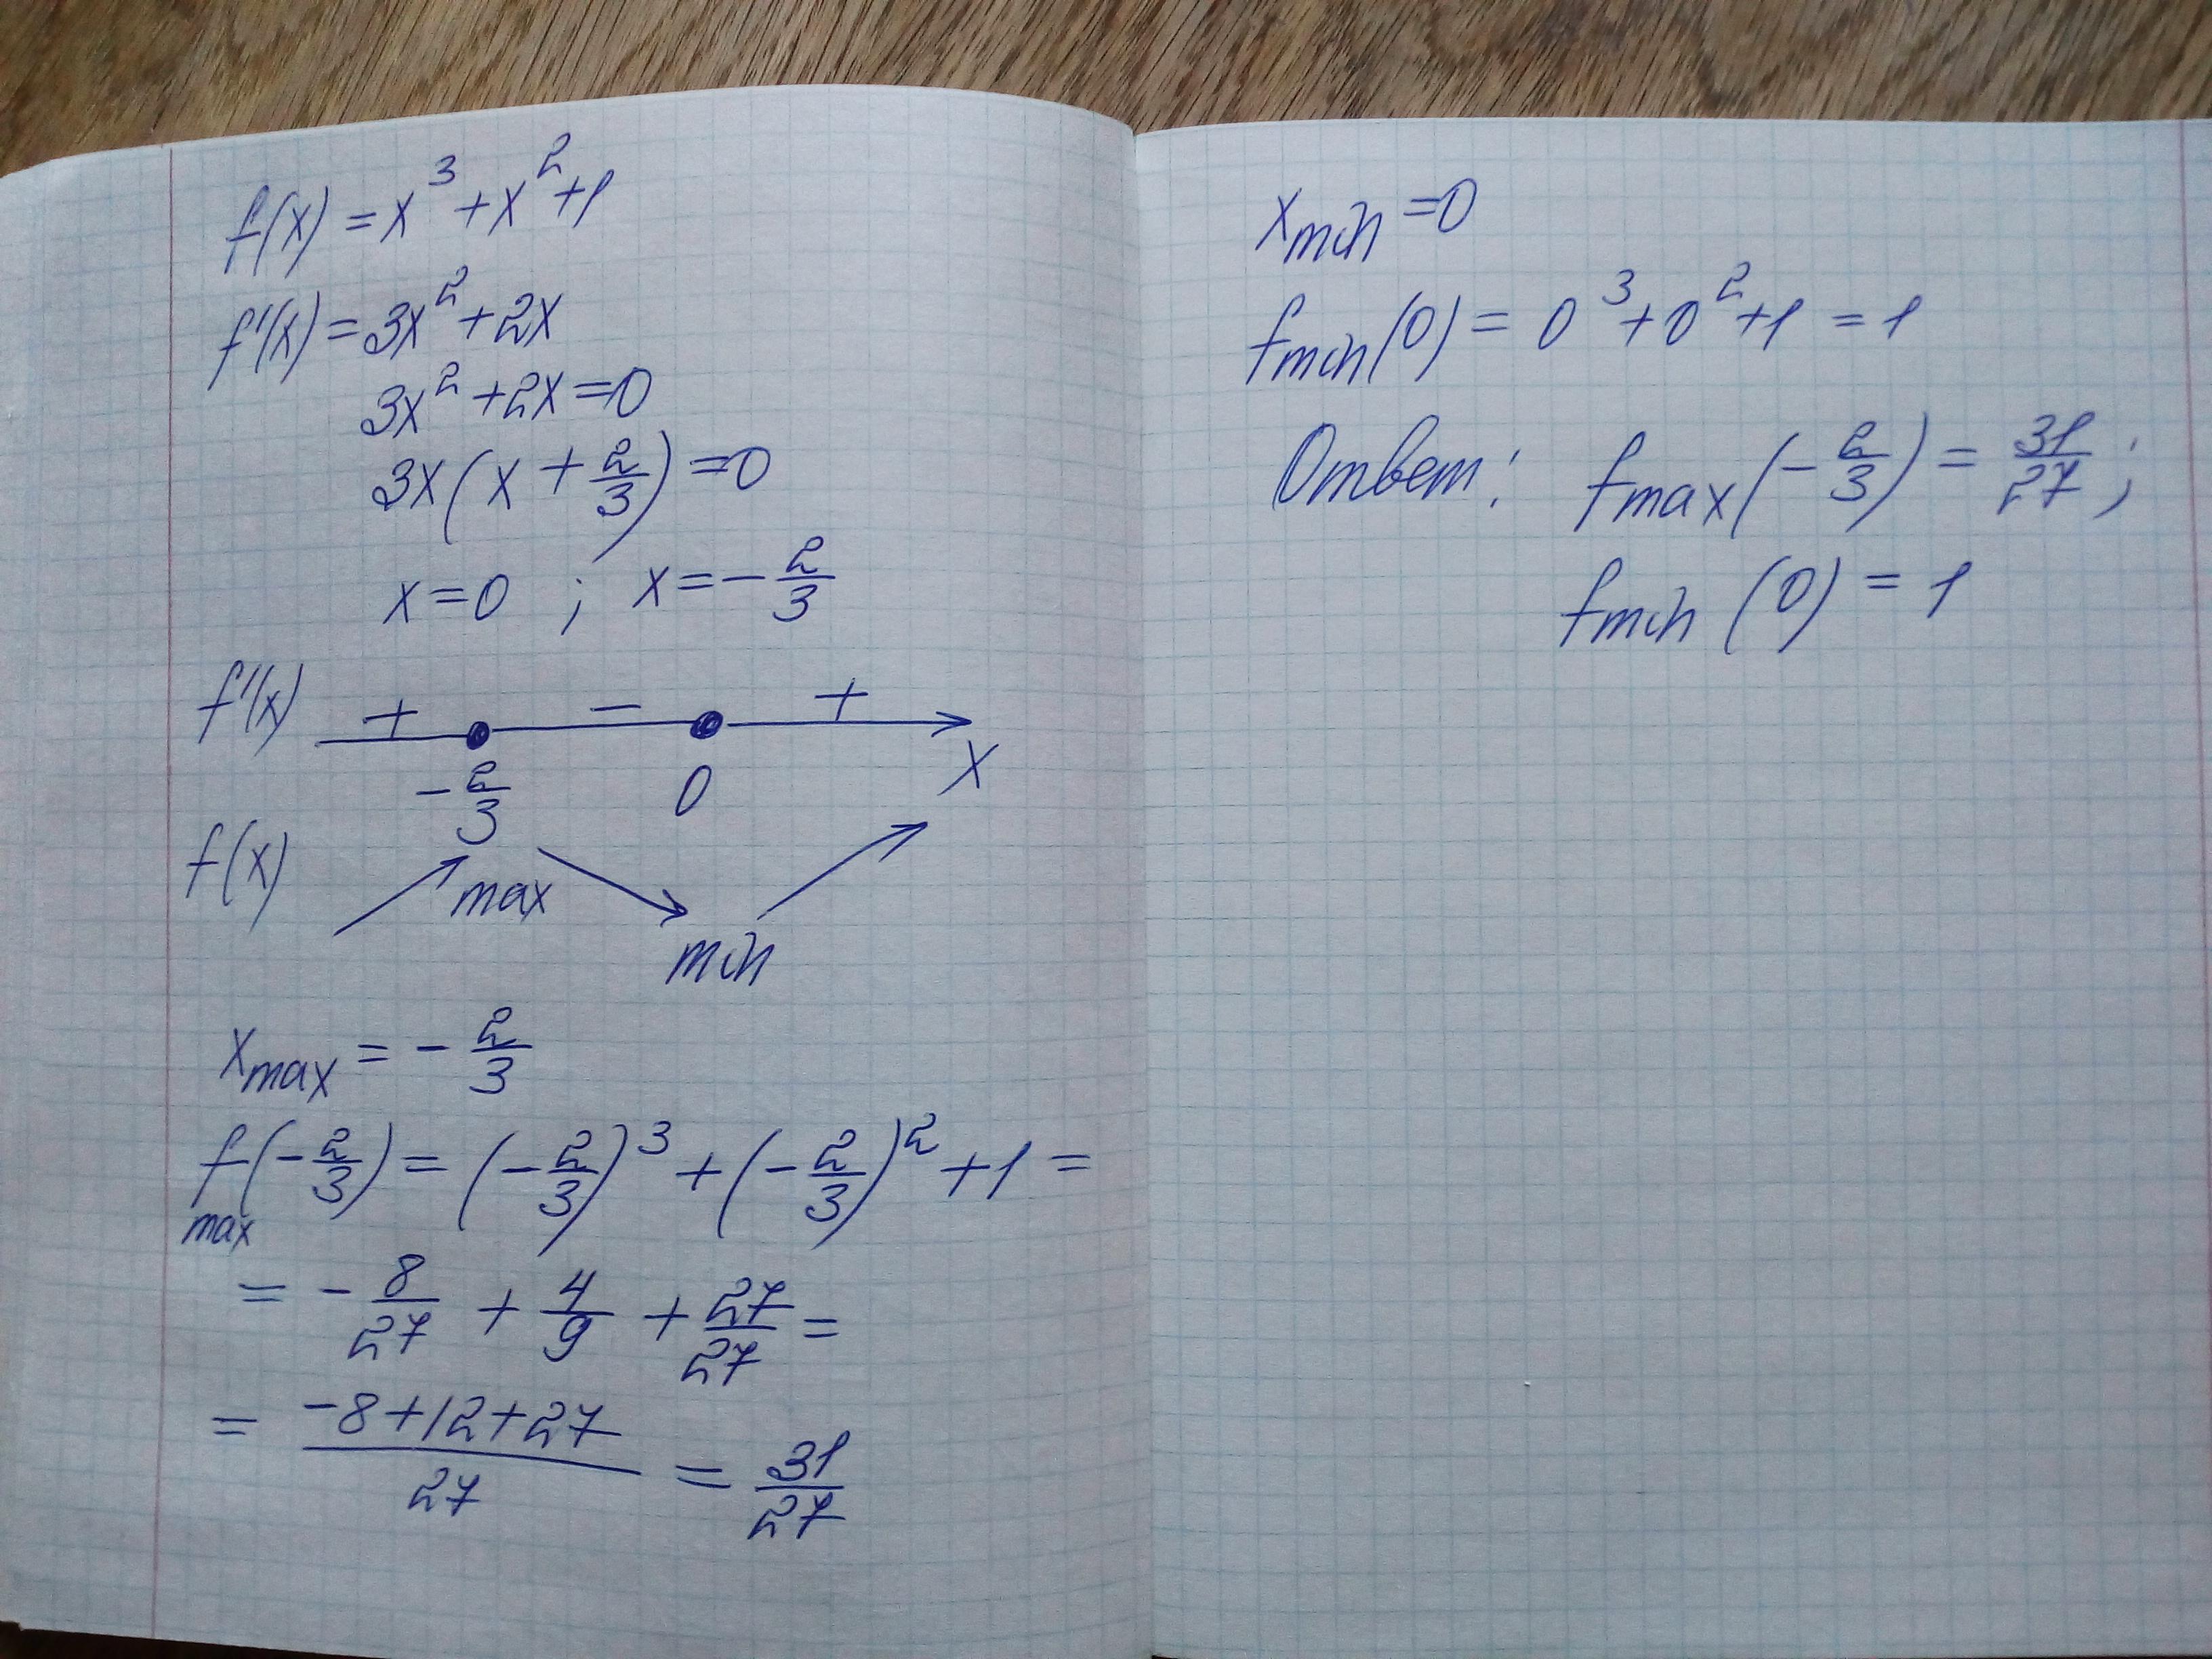 f(x) = x³ + x² + 1
f'(x) = 3x² + 2x
3x² + 2x = 0
3x(x + 2/3) = 0
x = 0 ; x = - 2/3
f'(x) + - + 
- 2/3 0 x
f(x) max
min
x max = - 2/3
f max (- 2/3) = (- 2/3)³ + (- 2/3)² + 1 =
= - 8/27 + 4/9 + 27/27 =
= (-8 + 12 + 27)/27 = 31/27
x min = 0
f min (0) = 0³ + 0² + 1 = 1
Ответ: f max (- 2/3) = 31/27 ;
f min (0) = 1